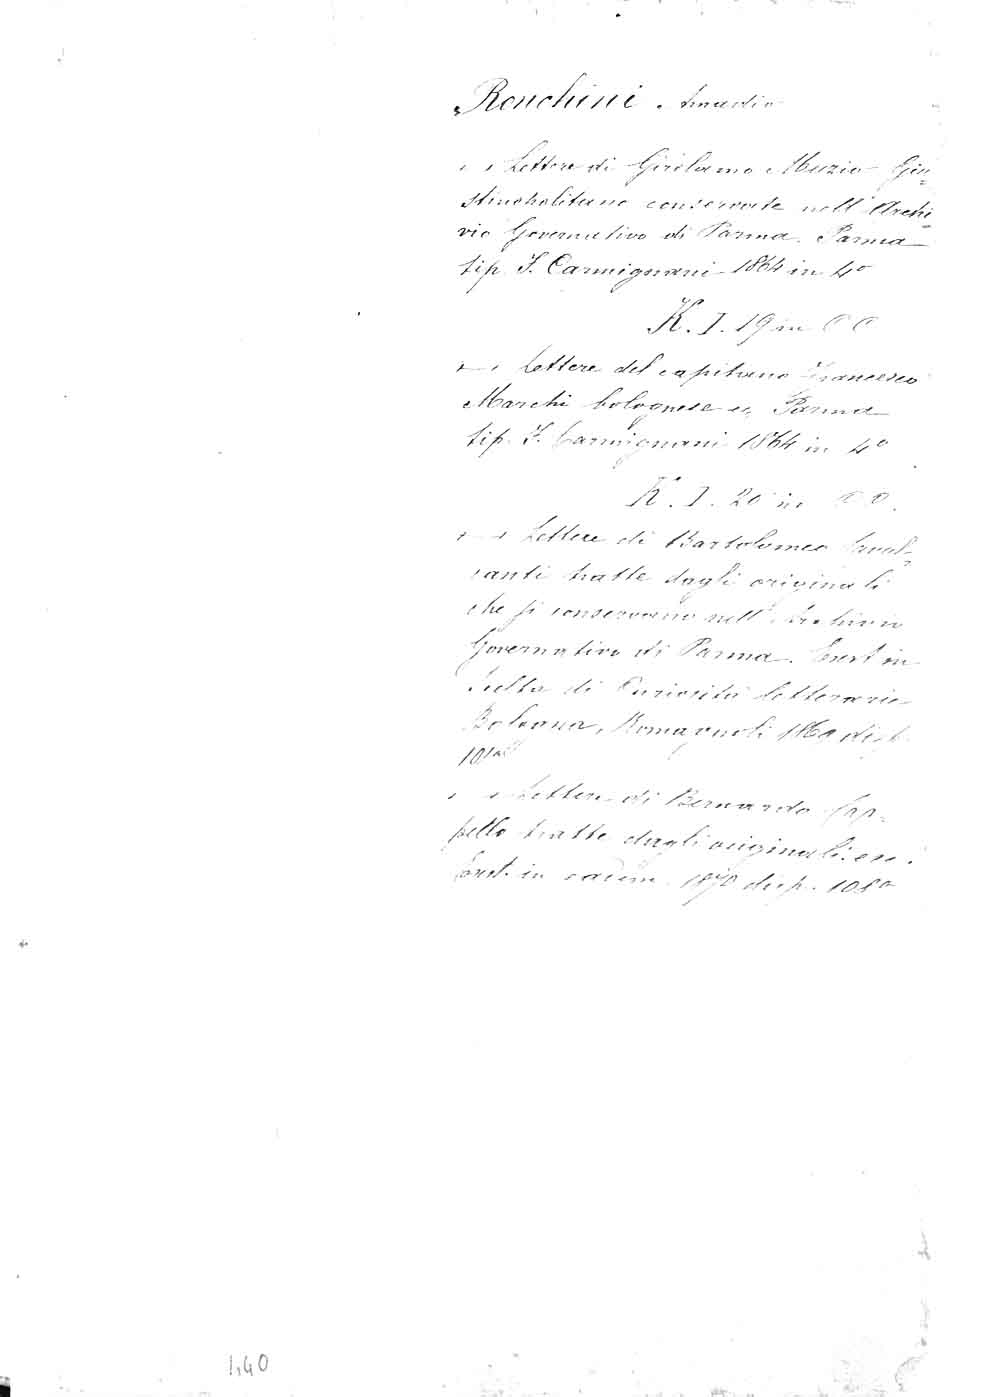 Ronchini. Amadio
Lettere di Girolamo Muzio Giu=
stinopolitano conservate nell'Archi=
vio Governativo di Parma. Parma
tip. F. Carmignani 1864 in 4o
K. I. 19 in
Lettere del capitano Francesco
Marchi bolognese Parma
tip. F. Carmignani 1864 in 4o
K. I. 20 in
Lettere di Bartolomeo Caval=
canti tratte dagli originali
che si conservano nell'Archivio
Governativo di Parma. in
Scelta di Curiosità letterarie
Bologna, Romagnoli
Lettere di Bernardo Cap=
pello tratte dagli originali
in 1870 disp. 108a
1,40